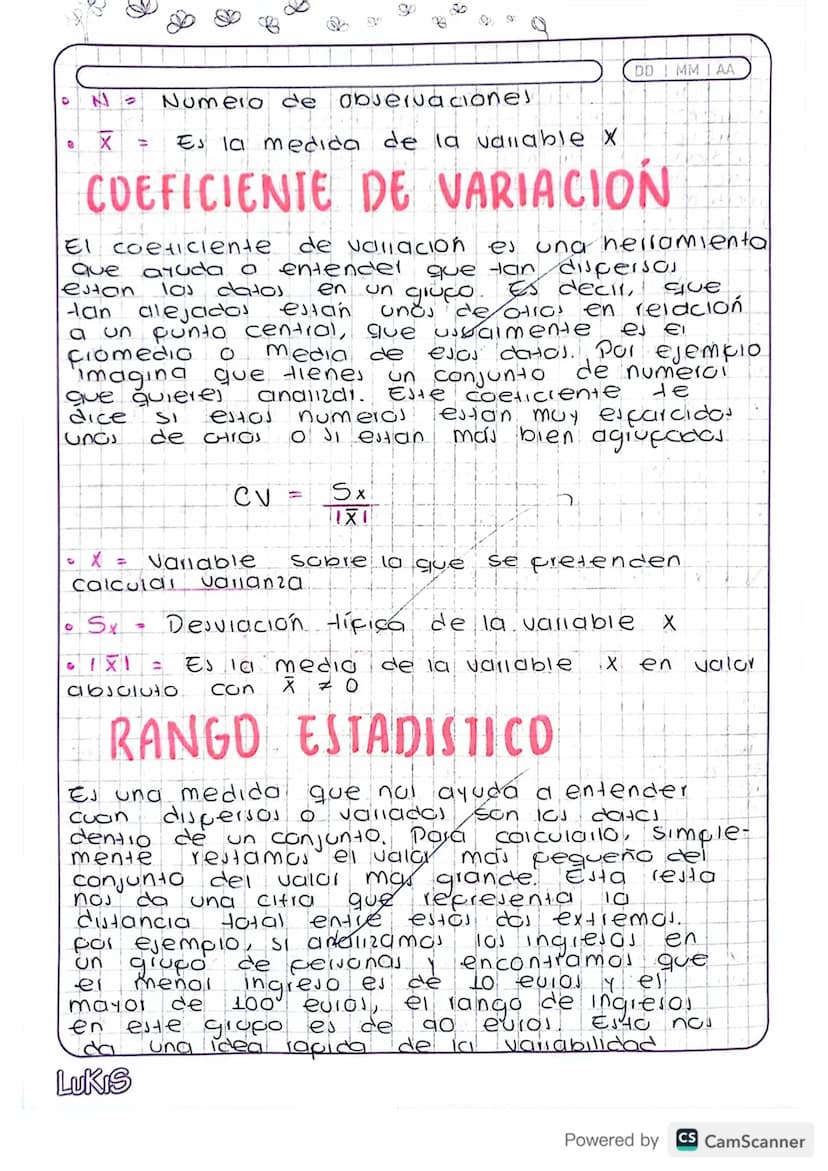 DD | MM | AA
• N = Numero de observaciones
• X̅ = Es la medida de la variable X
COEFICIENTE DE VARIACIÓN
El coeficiente de variación es una herramienta
que ayuda a entender que tan dispersos
estan los datos en un grupo. Es decir, que
tan alejados están unos de otros en relación
a un punto central, que usualmente es el
promedio o media de esos datos. Por ejemplo
imagina que tienes un conjunto de numeros
que quieres analizar. Este coeficiente te
dice si estos numeros estan muy esparcidos
unos de otros o si estan más bien agrupados
CV = Sx
|X̅|
• X = Variable sobre la que se pretenden
calcular varianza
• Sx = Desviación típica de la variable X
• |X̅| = Es la media de la variable X en valor
absoluto con X̅ ≠ 0
RANGO ESTADISTICO
Es una medida que nos ayuda a entender
cuan dispersos o variados son los datos
dentro de un conjunto. Para calcularlo, simple-
mente restamos el valor más pequeño del
conjunto del valor mas grande. Esta resta
nos da una cifra que representa la
distancia total entre estos dos extremos.
por ejemplo, si analizamos los ingresos en
un grupo de personas y encontramos que
el menor ingreso es de 10 euros y el
mayor de 100 euros, el rango de ingresos
en este grupo es de 90 euros. Esto nos
da una idea rapida de la variabilidad
LuKiS
Powered by CS CamScanner